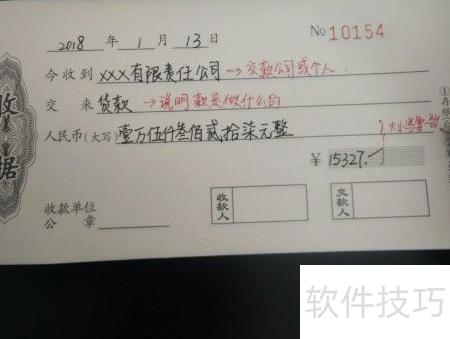 2018 年 1 月 13 日
No 10154
今收到 XXX有限责任公司 →交款公司或个人
交 来 货款 →说明款是做什么的
人民币(大写) 壹万伍仟叁佰贰拾柒元整
大小写要一致
¥ 15327.-
收款单位
公 章
收款人
交款人
收
据
软件技巧